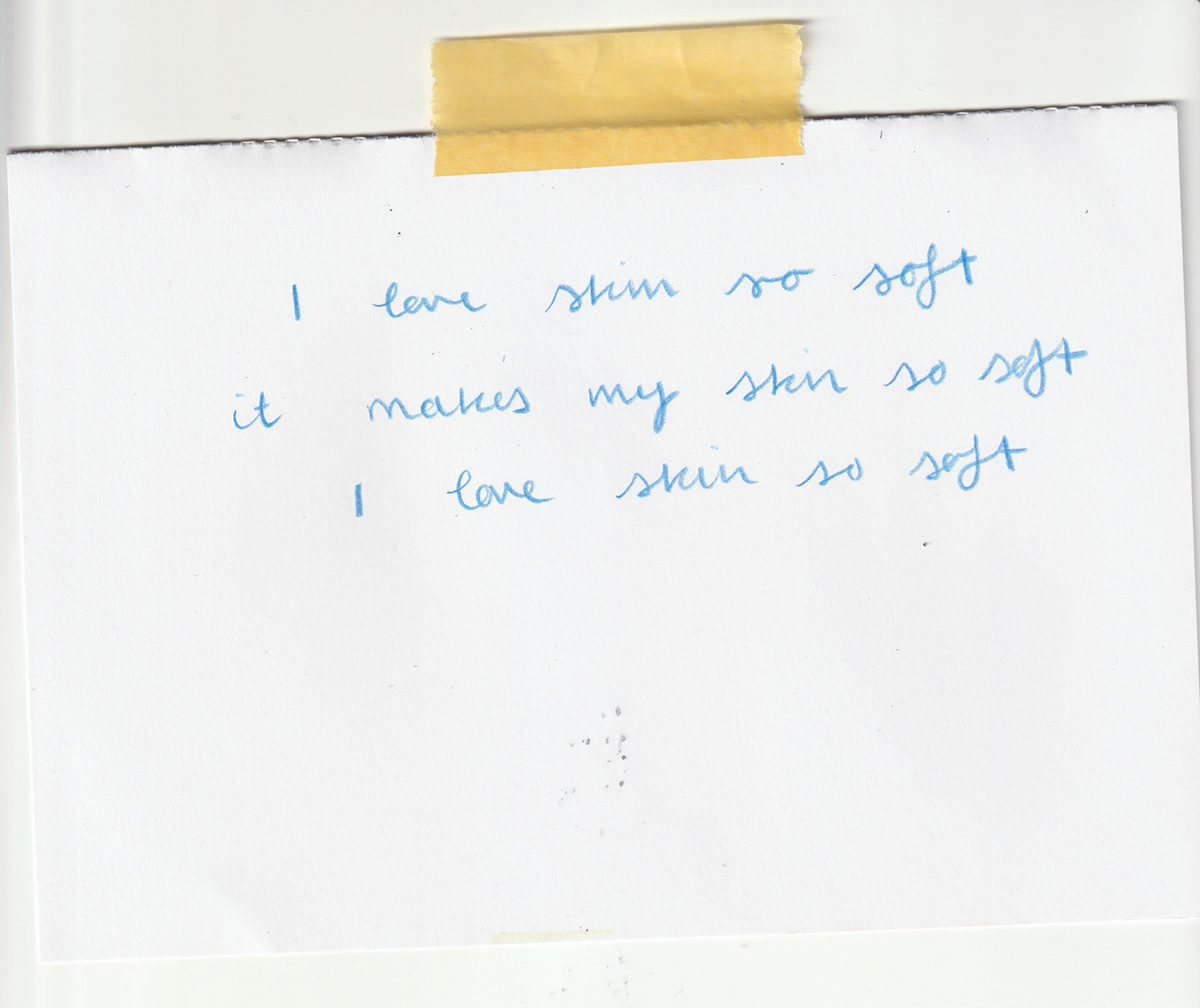 I love skin so soft
it makes my skin so soft
I love skin so soft